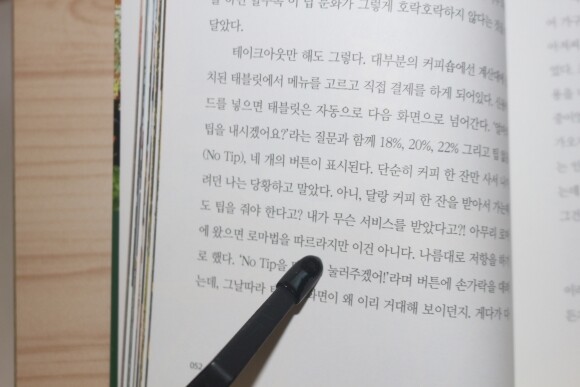 이 팁 문화가 그렇게 호락호락하지 않다는
달았다.
테이크아웃만 해도 그렇다. 대부분의 커피숍에선
치된 태블릿에서 메뉴를 고르고 직접 결제를 하게 되어있다.
드를 넣으면 태블릿은 자동으로 다음 화면으로 넘어간다.
팁을 내시겠어요?'라는 질문과 함께 18%, 20%, 22% 그리고 팁
(No Tip), 네 개의 버튼이 표시된다. 단순히 커피 한 잔만 사서
려던 나는 당황하고 말았다. 아니, 달랑 커피 한 잔을 받아서
도 팁을 줘야 한다고? 내가 무슨 서비스를 받았다고?! 아무리
에 왔으면 로마법을 따르라지만 이건 아니다. 나름대로 저항을
로 했다. 'No Tip을 눌러주겠어!'라며 버튼에 손가락을
는데, 그날따라 화면이 왜 이리 거대해 보이던지. 게다가
052